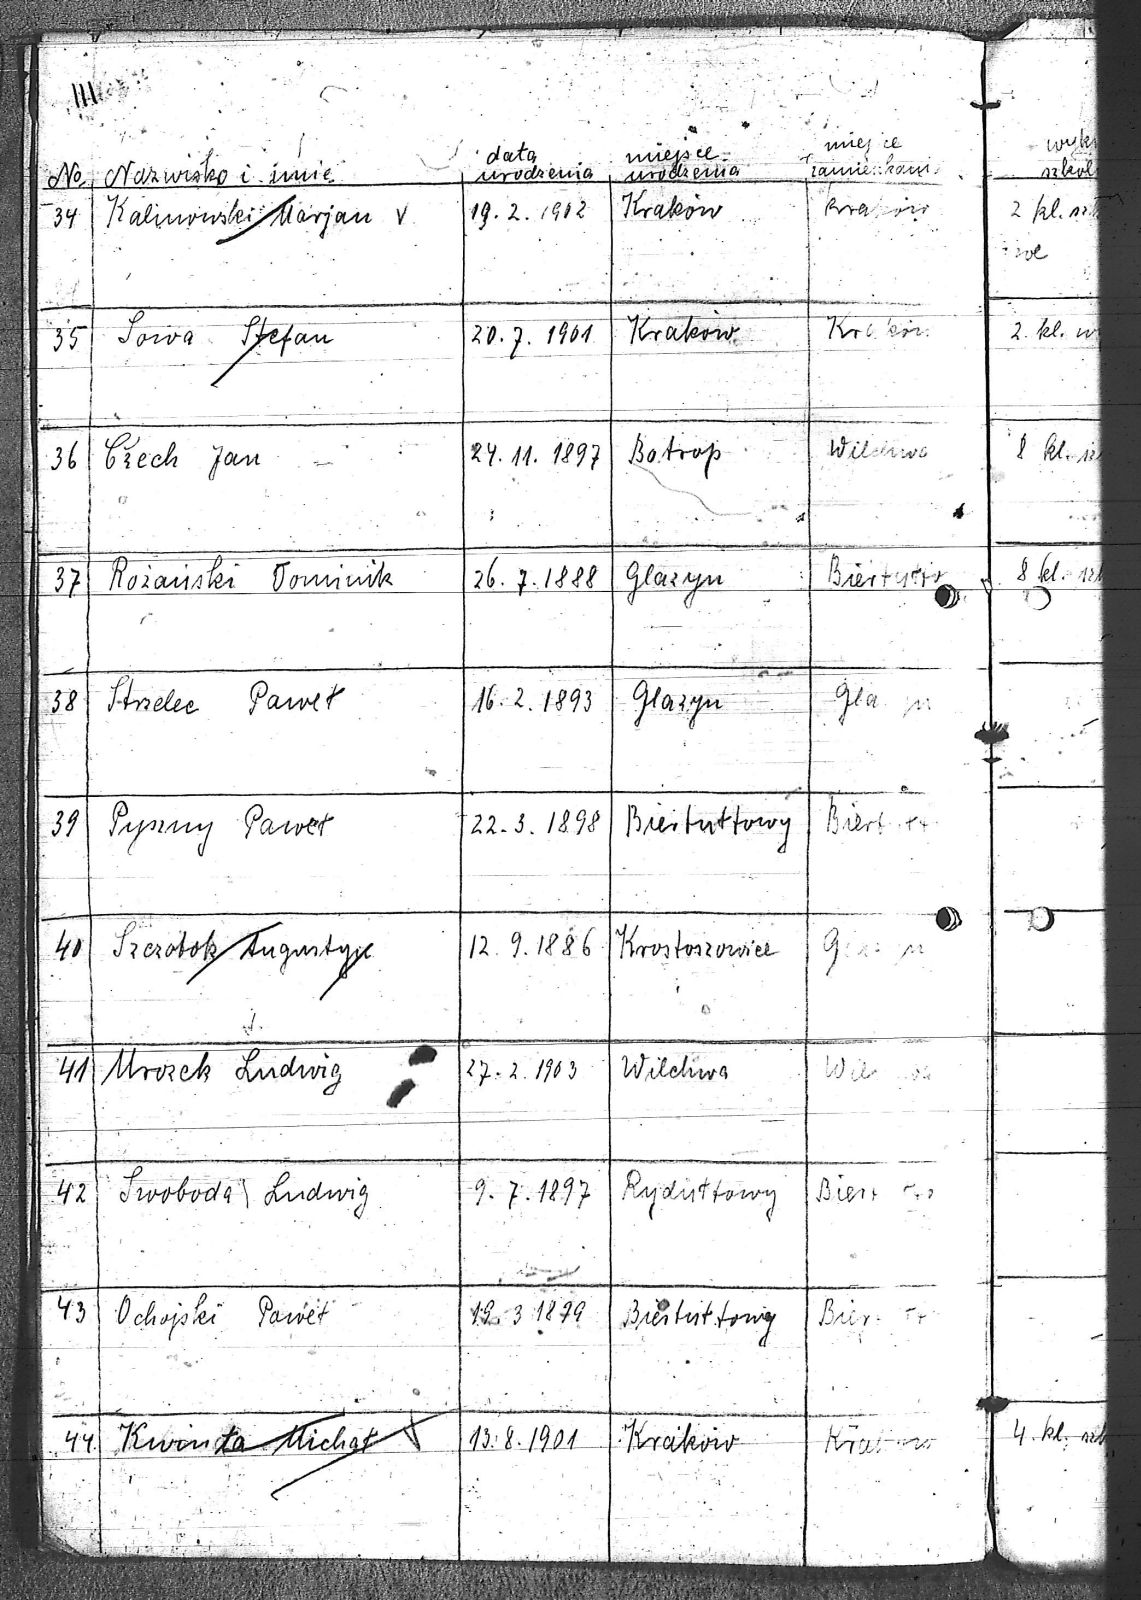 III
No Nazwisko i imię data urodzenia miejsce urodzenia miejsce
34 Kalinowski Marjan V 19.2.1902 Kraków Kraków 2 kl.
35 Sowa Stefan 20.7.1901 Kraków Kraków 2. kl. w
36 Czech Jan 24.11.1897 Botrop Wilchwa 8 kl.
37 Rożański Dominik 26.7.1888 Glazyn 8 kl.
38 Strzelec Paweł 16.2.1893 Glazyn
39 Pyszny Paweł 22.3.1898 Biertułtowy
40 Szczotok Augustyn 12.9.1886 Krostoszowice
41 Mrozek Ludwig 27.2.1903 Wilchwa
42 Swoboda Ludwig 9.7.1897 Rydułtowy
43 Ochojski Paweł 19.3 1879 Biertułtowy
44 Kwinta Michał V 13.8.1901 Kraków Kraków 4. kl.